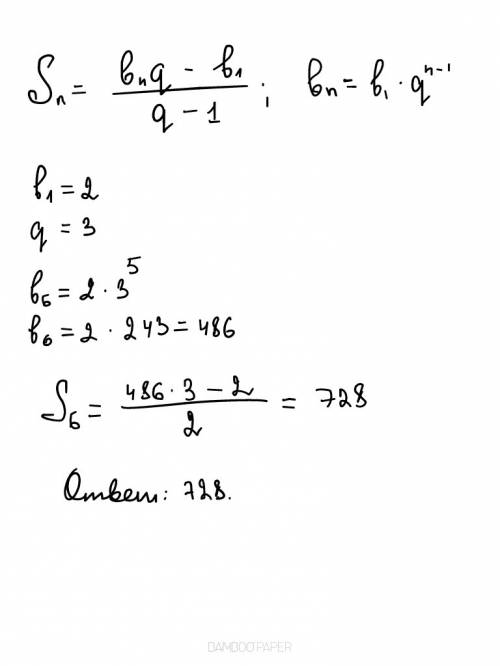 Sₙ = (bₙq − b₁)/(q − 1); bₙ = b₁ · qⁿ⁻¹
b₁ = 2
q = 3
b₆ = 2 · 3⁵
b₆ = 2 · 243 = 486
S₆ = (486 · 3 − 2)/2 = 728
Ответ: 728.
BAMBOOPAPER